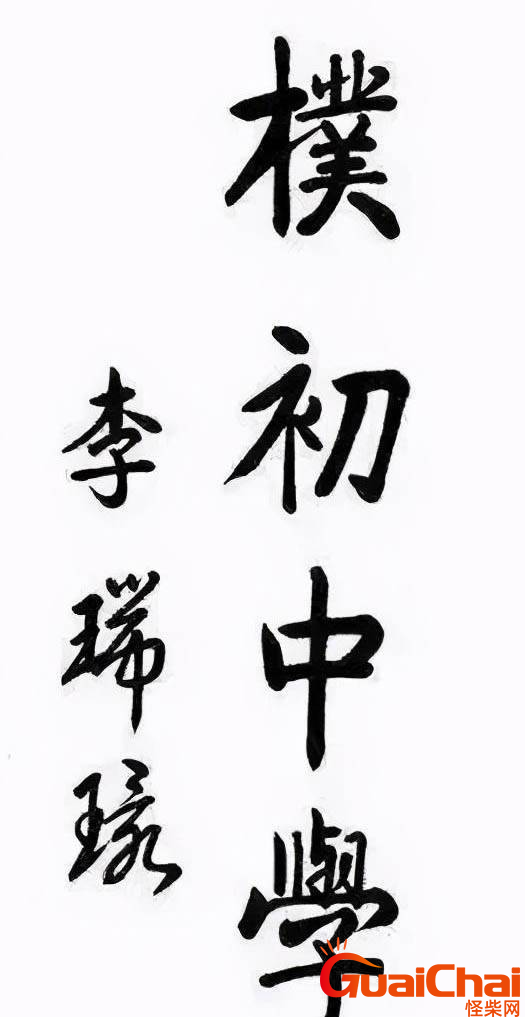 樸初中學
李瑞環
GuaiChai
怪柴网